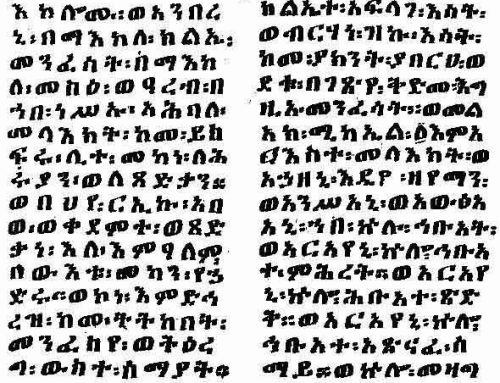 እከሎሙ፡ወአንበረ
ኒ፡በማእከለ፡ክልኤ፡
መንፈሳት፡በማእከ
ለ፡መስዕ፡ወዓረብ፡በ
ኀበ፡ነሥኡ፡አሕባለ፡
መላእክት፡ከመ፡ይስ
ፍሩ፡ሊተ፡መካነ፡ለኅ
ሩያን፡ወለጻድቃን።
ወበህየ፡ርኢኩ፡አበ
ወ፡ወቀደምተ፡ወጻድ
ቃነ፡እለ፡እምዓለም፡
በውእቱ፡መካን፡የኀ
ድሩ።ወኮነ፡እምድኅ
ረዝ፡ከመ፡ትትከበት፡
መንፈስየ፡ወትዕረ
ግ፡ውስተ፡ሰማያት፡
ክልኤተ፡አፍላገ፡እሳት፡
ወብርሃነ፡ዝኩ፡እሳት፡
ከመ፡ያክንት፡ያበርህ፡ወ
ደቁ፡በገጽየ፡ቅድመ፡እግ
ዚአ፡መንፈሳት።ወመል
አክ፡ሚካኤል፡፩እምአ
ርእስተ፡መላእክት፡ወ
አኃዘኒ፡እዴየ፡ዘየማን፡
ወአንሥአኒ፡ወአውፅአ
ኒ፡ኀበ፡ኵሎ፡ኅቡአት፡
ወአርአየኒ፡ኵሎ፡ኅቡአ
ተ፡ምሕረት።ወአርአየ
ኒ፡ኵሎ፡ኅቡአተ፡ጽድ
ቅ።ወአርአየኒ፡ኵሎ፡
ኅቡአተ፡አጽናፈ፡ሰ
ማይ።ወኵሎ፡መዛግ